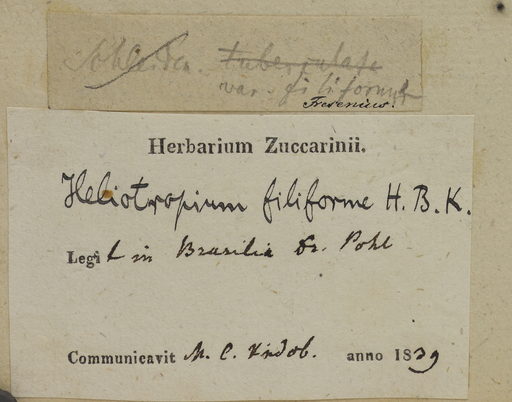 tuberculate
var. filiformis
Fresenius.
Herbarium Zuccarinii.
Heliotropium filiforme H. B. K.
Legit in Brasilia Dr. Pohl
Communicavit M. C. Vindob. anno 1839